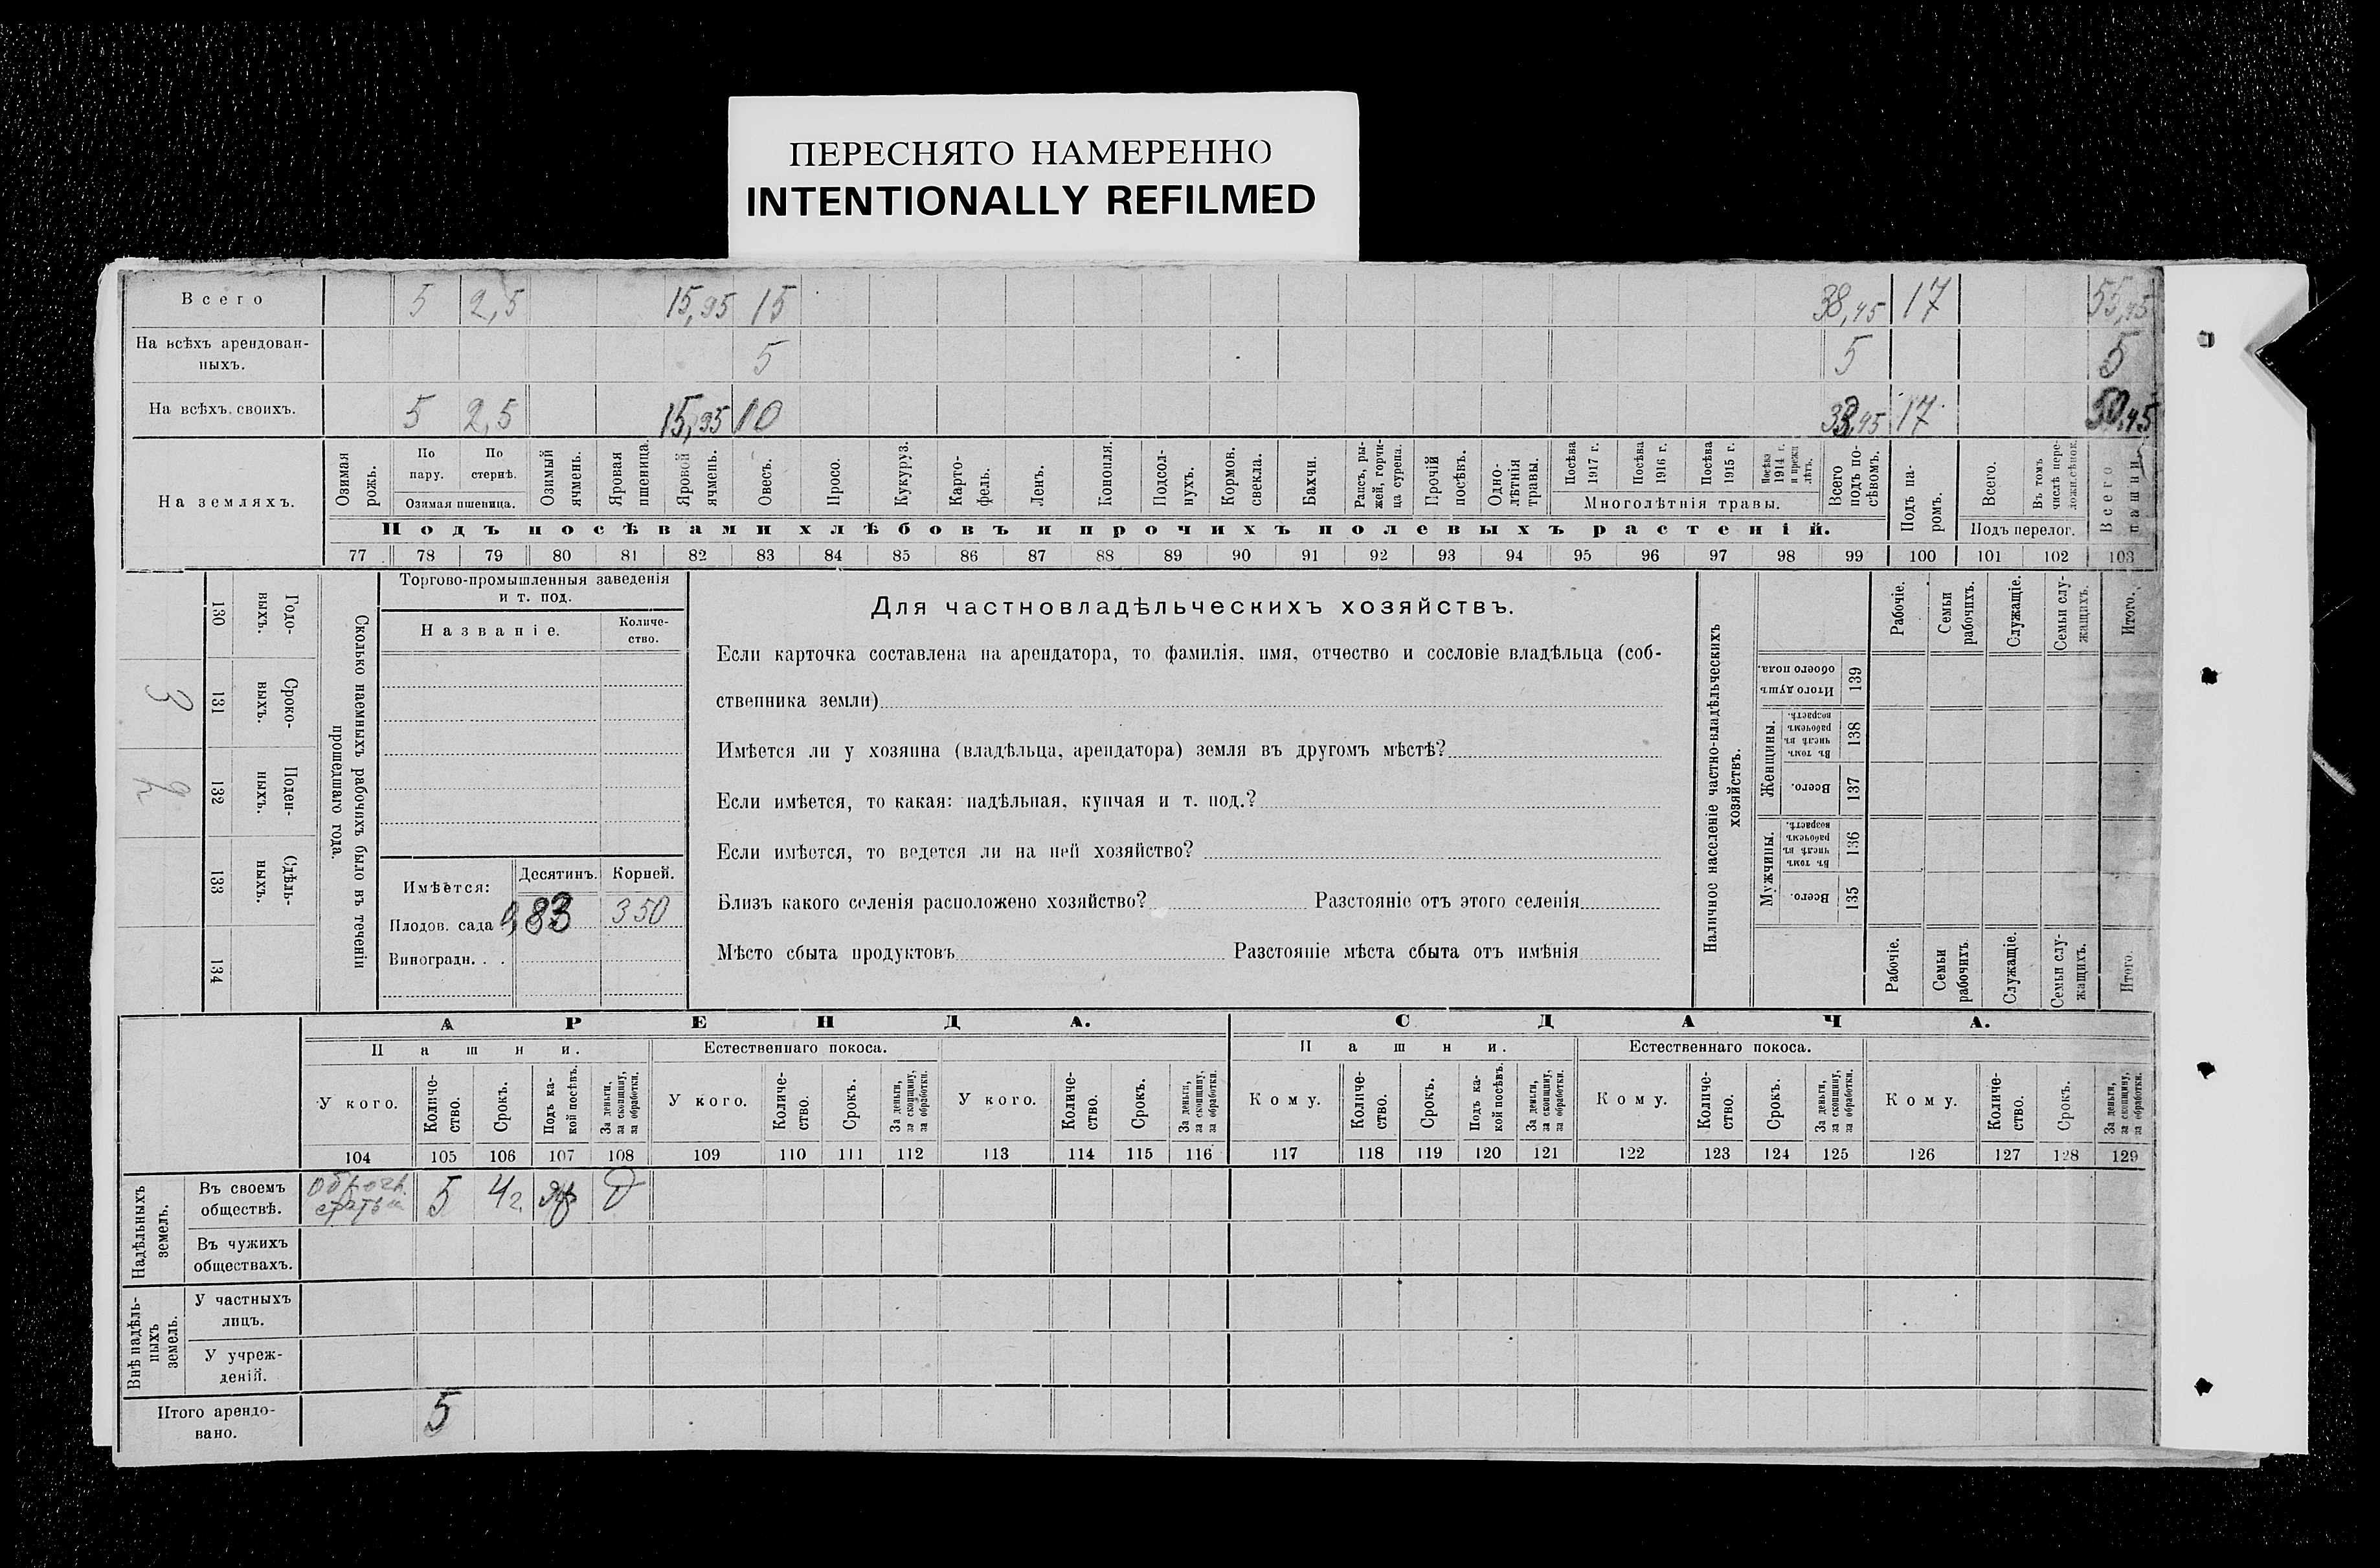 ПЕРЕСНЯТО НАМЕРЕННО
INTENTIONALLY REFILMED
Всего 5 2,5 15,95 15 38,45 17 55,45
На всѣхъ арендован-
ныхъ. 5 5 5
На всѣхъ своихъ. 5 2,5 15,95 10 33,45 17 50,45
На земляхъ.
Озимая рожь.
По пару.
По стернѣ.
Озимая пшеница.
Озимый ячмень.
Яровая пшеница.
Яровой ячмень.
Овесъ.
Просо.
Кукуруз.
Карто-
фель.
Ленъ.
Конопля.
Подсол-
нухъ.
Кормов. свекла.
Бахчи.
Рапсъ, ры-
жей, горчи-
ца сурепа.
Прочій посѣвъ.
Одно-
лѣтнія травы.
Посѣва 1917 г.
Посѣва 1916 г.
Посѣва 1915 г.
Посѣва 1914 г. и прежн лѣтъ.
Многолѣтнія травы.
Всего подъ по-
сѣвомъ.
Подъ па-
ромъ.
Всего.
Въ томъ числѣ пере-
ложн.
Подъ перелог.
Всего пашни.
Подъ посѣвами хлѣбовъ и прочихъ полевыхъ растеній.
77 78 79 80 81 82 83 84 85 86 87 88 89 90 91 92 93 94 95 96 97 98 99 100 101 102 103
Сколько наемныхъ рабочихъ было въ теченіи
прошедшаго года.
Годо-
выхъ.
130
Сроко-
выхъ.
131
3
Поден-
ныхъ.
132
2
Сдѣль-
ныхъ.
133
134
Торгово-промышленныя заведенія
и т. под.
Названіе. Количе-
ство.
Имѣется: Десятинъ. Корней.
Плодов. сада 0,83 350
Виноградн. . .
Для частновладѣльческихъ хозяйствъ.
Если карточка составлена на арендатора, то фамилія, имя, отчество и сословіе владѣльца (соб-
ственника земли)
Имѣется ли у хозяина (владѣльца, арендатора) земля въ другомъ мѣстѣ?
Если имѣется, то какая: надѣльная, купчая и т. под.?
Если имѣется, то ведется ли на ней хозяйство?
Близъ какого селенія расположено хозяйство? Разстояніе отъ этого селенія
Мѣсто сбыта продуктовъ Разстояніе мѣста сбыта отъ имѣнія
Наличное населеніе частно-владѣльческихъ
хозяйствъ.
Рабочіе.
Семьи рабочихъ.
Служащіе.
Семьи слу-
жащихъ.
Итого.
Итого душъ обоего пола. 139
Женщины.
Въ томъ числѣ въ рабочемъ возрастѣ. 138
Всего. 137
Мужчины.
Въ томъ числѣ въ рабочемъ возрастѣ. 136
Всего. 135
Рабочіе.
Семьи рабочихъ.
Служащіе.
Семьи слу-
жащихъ.
Итого.
АРЕНДА. СДАЧА.
Пашни. Естественнаго покоса. Пашни. Естественнаго покоса.
У кого.
Количе-
ство.
Срокъ.
Подъ ка-
кой посѣвъ.
За деньги, за скопщину, за обработки.
У кого.
Количе-
ство.
Срокъ.
За деньги, за скопщину, за обработки.
У кого.
Количе-
ство.
Срокъ.
За деньги, за скопщину, за обработки.
Кому.
Количе-
ство.
Срокъ.
Подъ ка-
кой посѣвъ.
За деньги, за скопщину, за обработки.
Кому.
Количе-
ство.
Срокъ.
За деньги, за скопщину, за обработки.
Кому.
Количе-
ство.
Срокъ.
За деньги, за скопщину, за обработки.
104 105 106 107 108 109 110 111 112 113 114 115 116 117 118 119 120 121 122 123 124 125 126 127 128 129
Надѣльныхъ земель.
Въ своемъ обществѣ. Оброчн. статьи 5 4 г. яр Д
Въ чужихъ
обществахъ.
Внѣ надѣль-
ныхъ земель.
У частныхъ
лицъ.
У учреж-
деній.
Итого арендо-
вано. 5